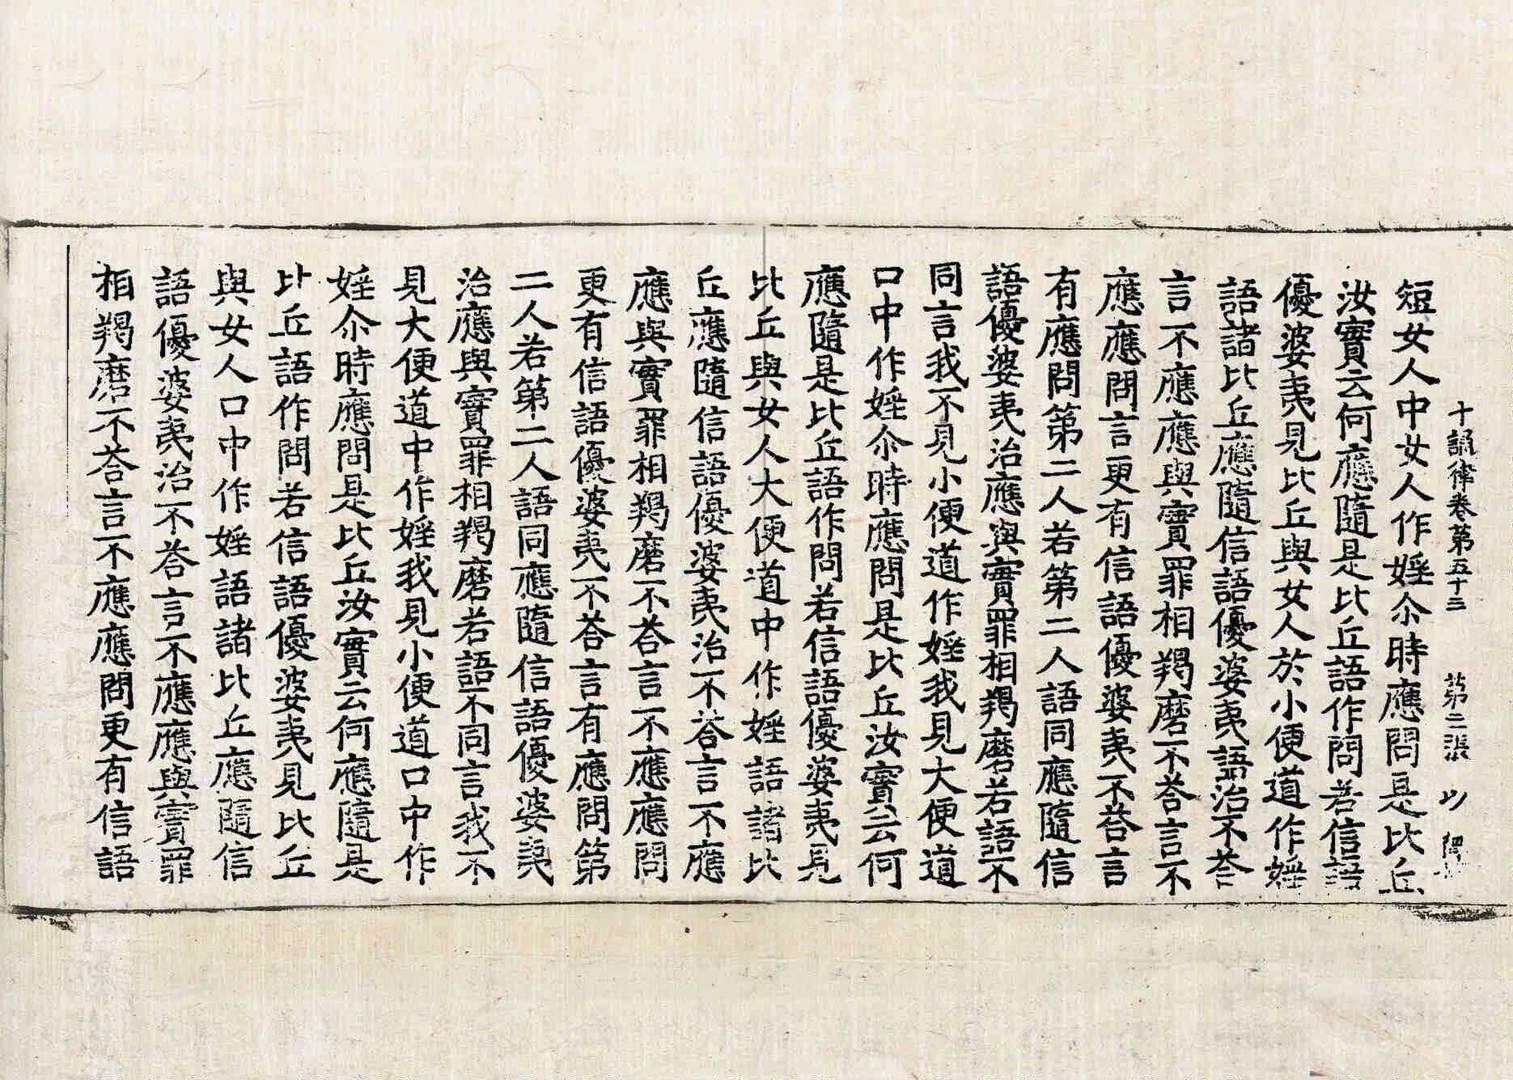 十誦律卷第五十三 第二張 以
短女人中女人作婬尒時應問是比丘
汝實云何應隨是比丘語作問若信語
優婆夷見比丘與女人於小便道作婬
語諸比丘應隨信語優婆夷語治不荅
言不應應與實罪相羯磨不荅言不
應應問言更有信語優婆夷不荅言
有應問第二人若第二人語同應隨信
語優婆夷治應與實罪相羯磨若語不
同言我不見小便道作婬我見大便道
口中作婬尒時應問是比丘汝實云何
應隨是比丘語作問若信語優婆夷見
比丘與女人大便道中作婬語諸比
丘應隨信語優婆夷治不荅言不應
應與實罪相羯磨不荅言不應應問
更有信語優婆夷不荅言有應問第
二人若第二人語同應隨信語優婆夷
治應與實罪相羯磨若語不同言我不
見大便道中作婬我見小便道口中作
婬尒時應問是比丘汝實云何應隨是
比丘語作問若信語優婆夷見比丘
與女人口中作婬語諸比丘應隨信
語優婆夷治不荅言不應應與實罪
相羯磨不荅言不應應問更有信語